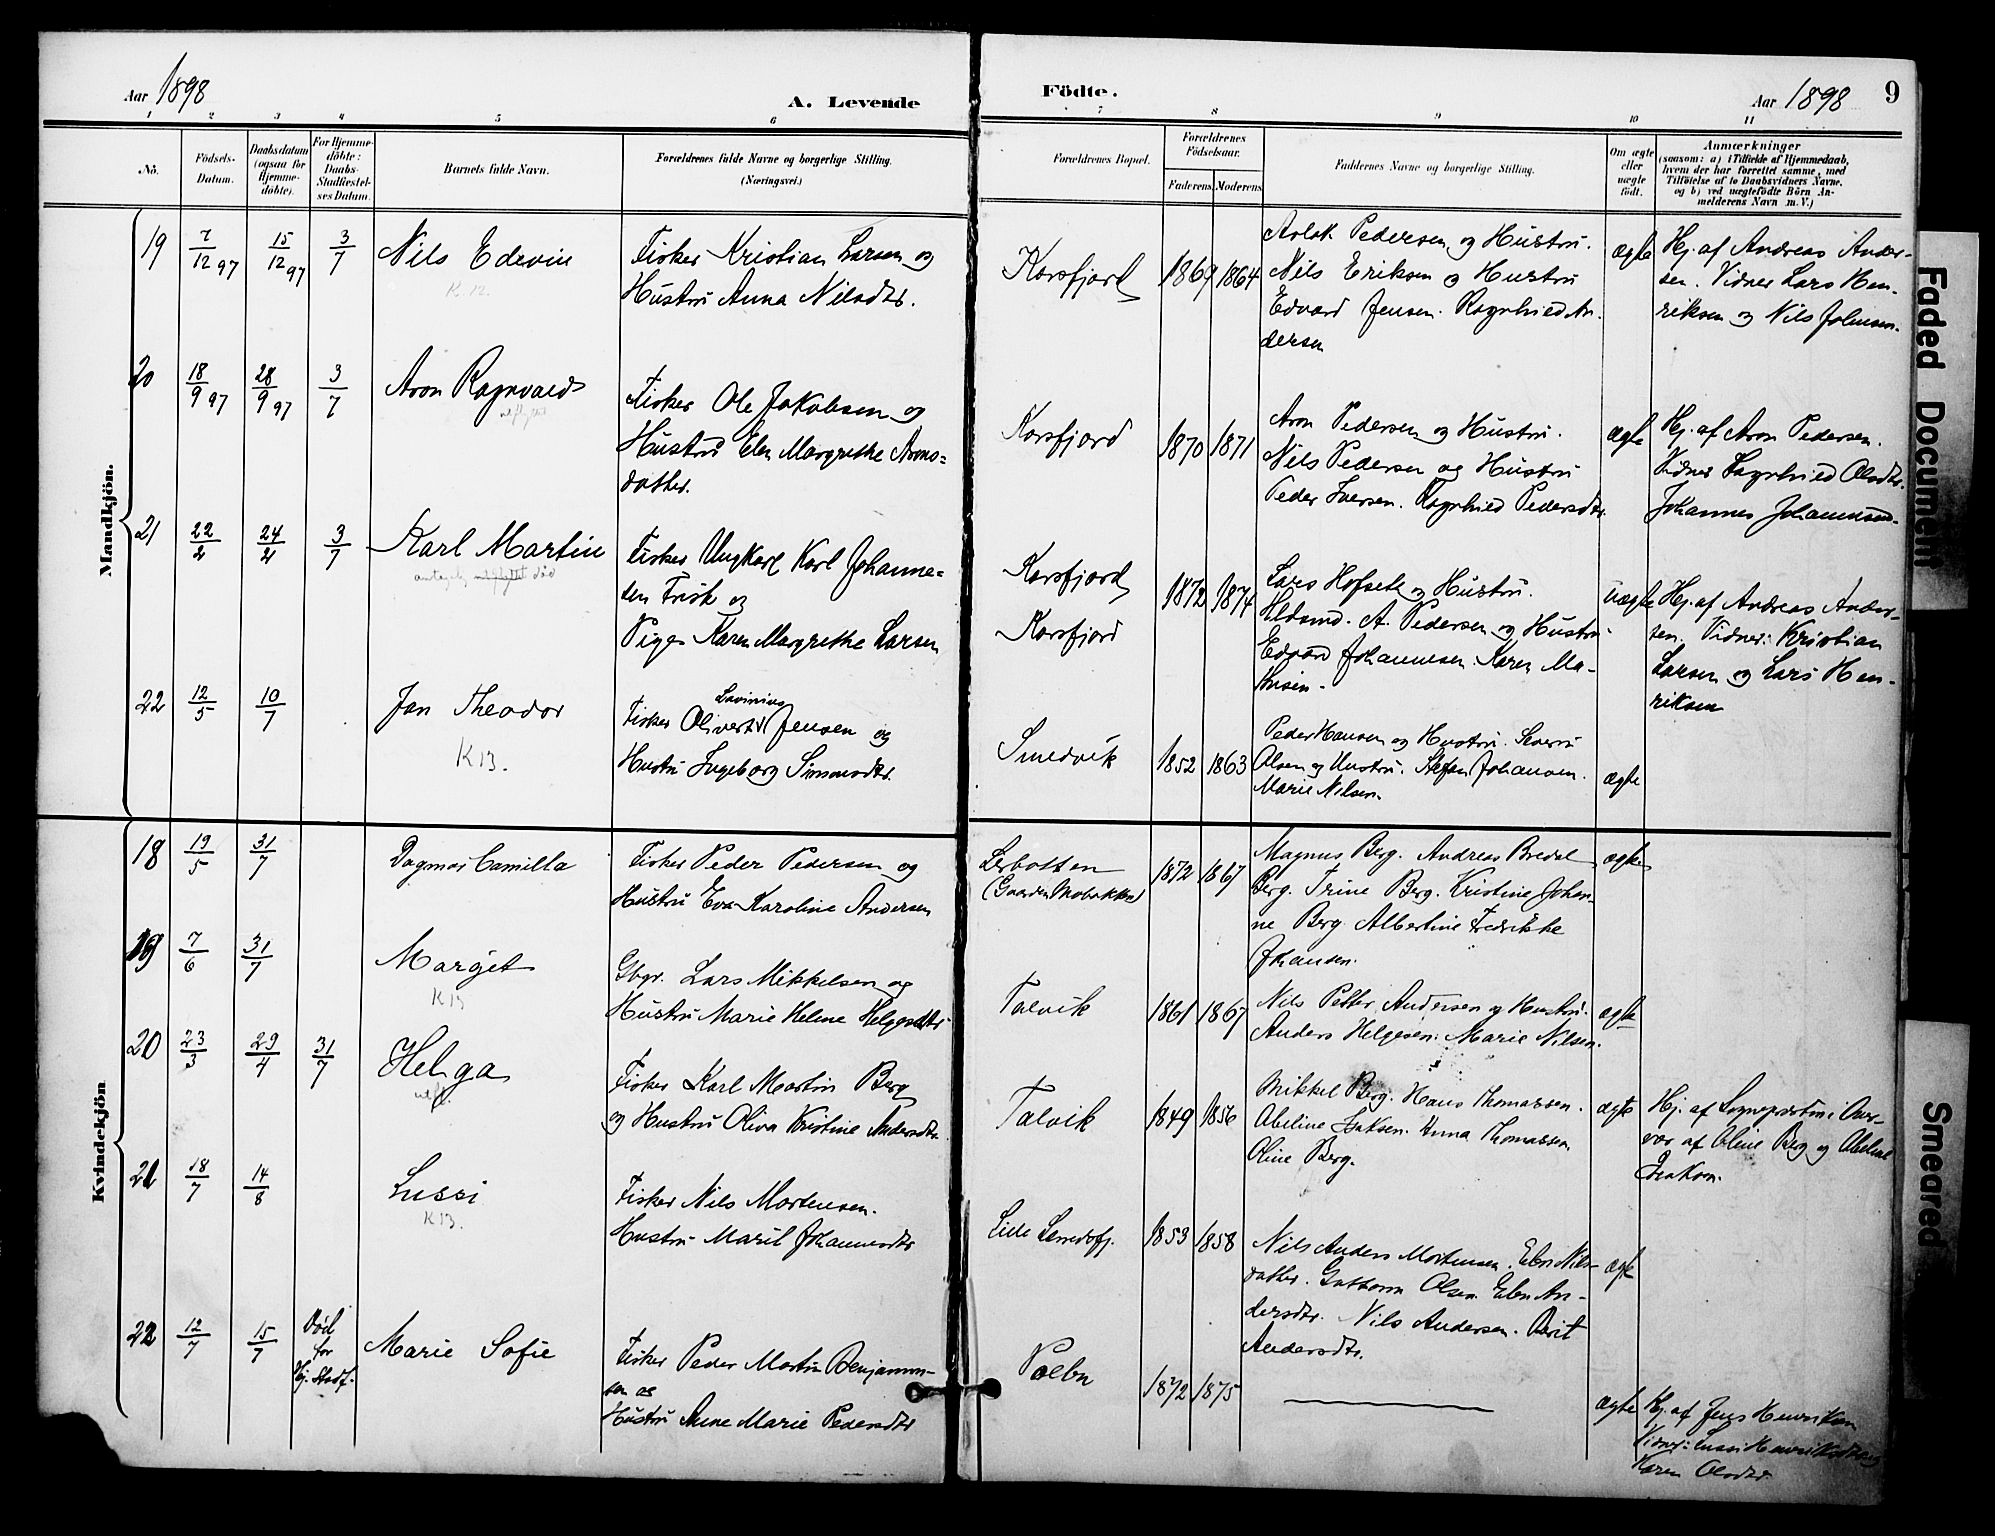 Aar 1898
A. Levende
Födte.
Aar 1898
9
1 2 3 4 5 6 7 8 9 10 11
No.
Födsels-
Datum.
Daabsdatum
(ogsaa for
Hjemme-
döbte).
For Hjemme-
döbte:
Daabs-
Stadfæstel-
ses Datum.
Barnets fulde Navn.
Forældrenes fulde Navne og borgerlige Stilling.
(Næringsvei.)
Forældrenes Bopæl.
Forældrenes
Födselsaar.
Faderens Moderens
Faddernes Navne og borgerlige Stilling.
Om ægte
eller
uægte
födt.
Anmærkninger
(saasom: a) i Tilfælde af Hjemmedaab,
hvem der har forrettet samme, med
Tilföielse af to Daabsvidners Navne,
og b) ved uægtefödte Börn An-
melderens Navn m. V.)
Mandkjön.
19
7/12 97
15/12 97
3/7
Nils Edevin
K. 12.
Fisker Kristian Larsen og
Hustru Anna Nilsdtr.
Korsfjord
1869 1864
Aslak Pedersen og Hustru.
Nils Eriksen og Hustru
Edvard Jensen. Ragnhild An-
dersen
ægte
Hj. af Andreas Ander-
sen. Vidner Lars Hen-
riksen og Nils Johnsen.
20
18/9 97
28/9 97
3/7
Aron Ragnvald
utflyttet
Fisker Ole Jakobsen og
Hustru Elen Margrethe Arons-
datter.
Korsfjord
1870 1871
Aron Pedersen og Hustru.
Nils Pedersen og Hustru
Peder Iversen. Ragnhild Pedersdtr.
ægte
Hj. af Aron Pedersen.
Vidner Ragnhild Olsdtr.
Johannes Johannesen.
21
22/2
24/2
3/7
Karl Martin
død
Fisker Ungkarl Karl Johanne-
sen Frisk og
Pige Karen Margrethe Larsen
Korsfjord
Korsfjord
1872 1874
Lars Hofseth og Hustru.
A. Pedersen og Hustru
Edvard Johannesen. Karen Ma-
thisen.
uægte
Hj. af Andreas Ander-
sen. Vidner: Kristian
Larsen og Lars Hen-
riksen
22
12/5
10/7
Jan Theodor
K 13.
Lavinius
Fisker Olivert Jensen og
Hustru Ingeborg Simonsdtr.
Smedvik
1852 1863
Peder Hansen og Hustru. Severin
Olsen og Hustru. Stefan Johansen.
Marie Nilsen.
ægte
Kvindekjön
18
19/5
31/7
Dagmar Camilla
Fisker Peder Pedersen og
Hustru Eva Karoline Andersen
Lerbotten
(Gaarden Mobakken)
1872 1867
Magnus Berg. Andreas Bredal
Berg. Trine Berg. Kristine Johan-
ne Berg. Albertine Fredrikke
Johansen.
ægte
19
7/6
31/7
Margit
K 13
Gbgr. Lars Mikkelsen og
Hustru Marie Helene Helgesdtr.
Talvik
1861 1867
Nils Petter Andersen og Hustru.
Anders Helgesen. Marie Nilsen.
ægte
20
23/3
29/4
31/7
Helga
utfl.
Fisker Karl Martin Berg
og Hustru Oliva Kristine Andersdtr.
Talvik
1849 1856
Mikkel Berg. Hans Thomassen.
Abeline Isaksen. Anna Thomassen
Oline Berg.
ægte
Hj. af Sognepræsten i Over-
vær af Oline Berg og Abeline
Isaksen.
21
18/7
14/8
Lussi
K 13.
Fisker Nils Mortensen.
Hustru Marit Johannesdtr
Lille Lerresfj.
1853 1858
Nils Anders Mortensen. Elen Nils-
datter. Guttorm Olsen. Elen An-
dersdtr. Nils Andersen. Berit
Andersdtr.
ægte
22
12/7
15/7
Død
før
Hj. Stadf.
Marie Sofie
Fisker Peder Martin Benjamin-
sen og
Hustru Anne Marie Pedersdtr
Pollen
1872 1875
ægte
Hj. af Jens Henriksen
Vidner: Lussi Henriksdtr og
Karen Olsdtr.
Faded Document
Smeared